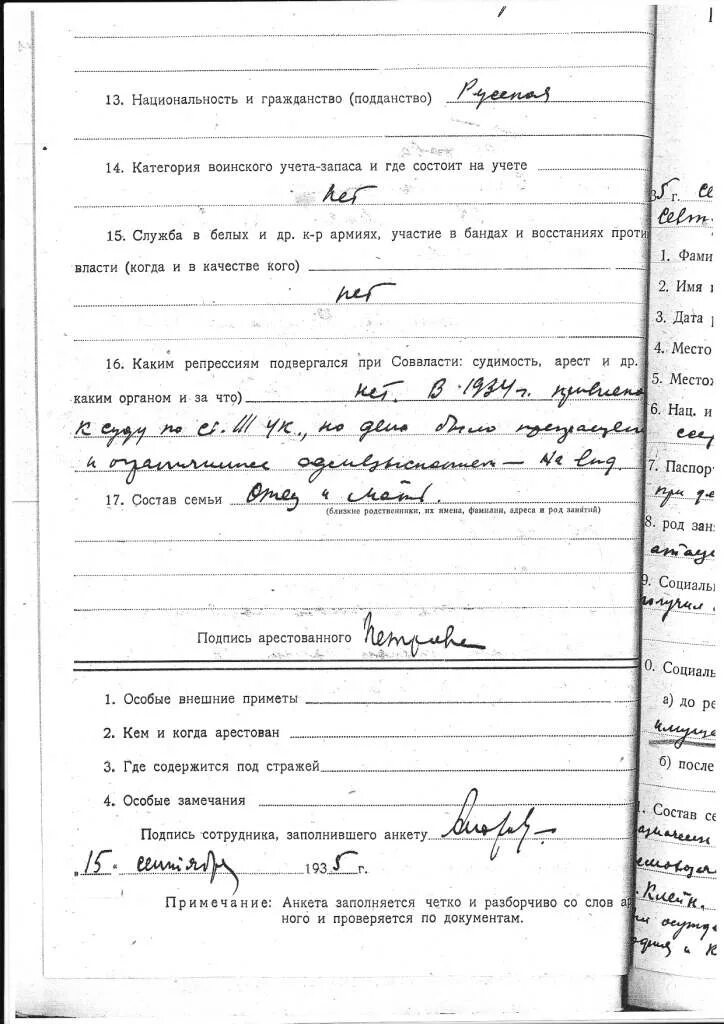 13. Национальность и гражданство (подданство) Русская
14. Категория воинского учета-запаса и где состоит на учете
нет
15. Служба в белых и др. к-р армиях, участие в бандах и восстаниях проти
власти (когда и в качестве кого)
нет
16. Каким репрессиям подвергался при Соввласти: судимость, арест и др.
каким органом и за что) нет. В 1934 г.
к суду по ст. III УК., но дело было прекращен
и ограничились — на вид.
17. Состав семьи Отец и мать.
(близкие родственники, их имена, фамилии, адреса и род занятий)
Подпись арестованного
1. Особые внешние приметы
2. Кем и когда арестован
3. Где содержится под стражей
4. Особые замечания
Подпись сотрудника, заполнившего анкету
„15" сентября 1935 г.
Примечание: Анкета заполняется четко и разборчиво со слов ар
ного и проверяется по документам.
35 г. се
1. Фами
2. Имя
3. Дата р
4. Место
5. Место
6. Нац. и
7. Паспор
при
8. род зан
9. Социаль
получил
0. Социаль
а) до ре
б) после
1. Состав се
Клейн.